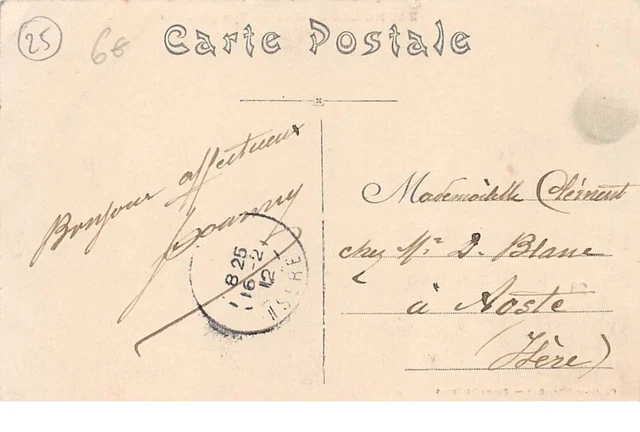 25
6€
Carte Postale
Bonjour affectueux
Mademoiselle Clément
chez Mr D. Blanc
à Aoste
(Isère)
8 25
16 - 2
12
ISERE